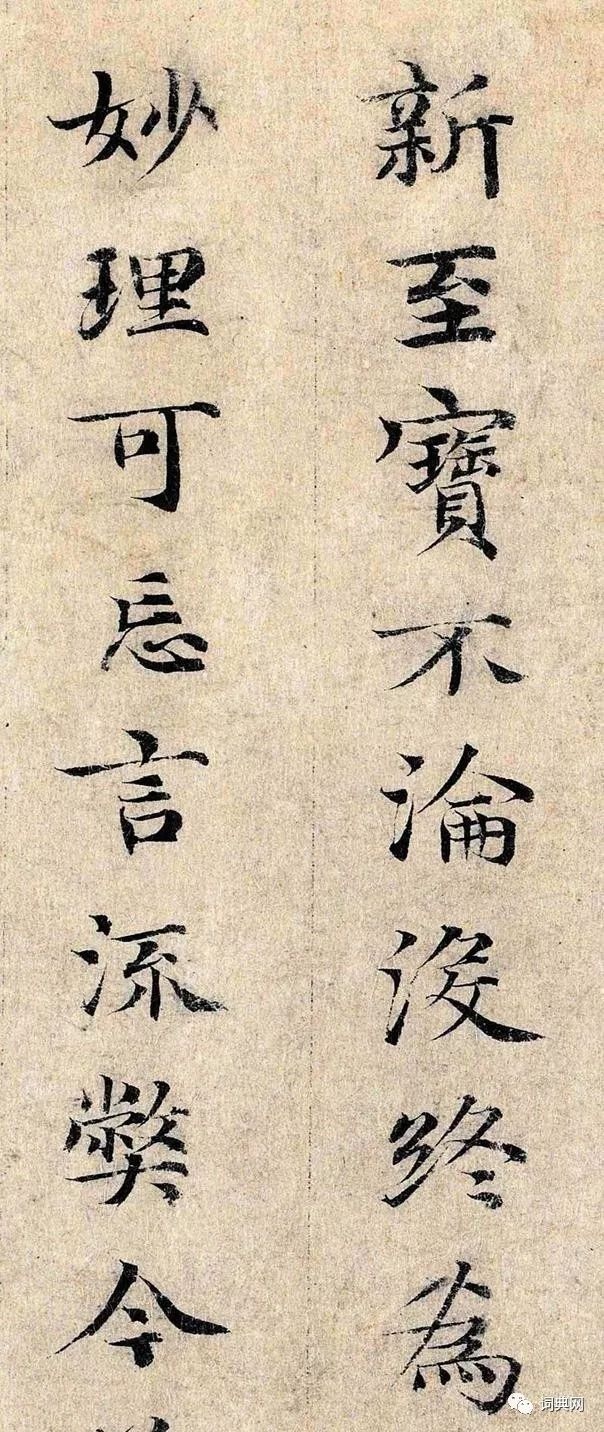 新至寶不淪没終為
妙理可忘言流弊今
词典网